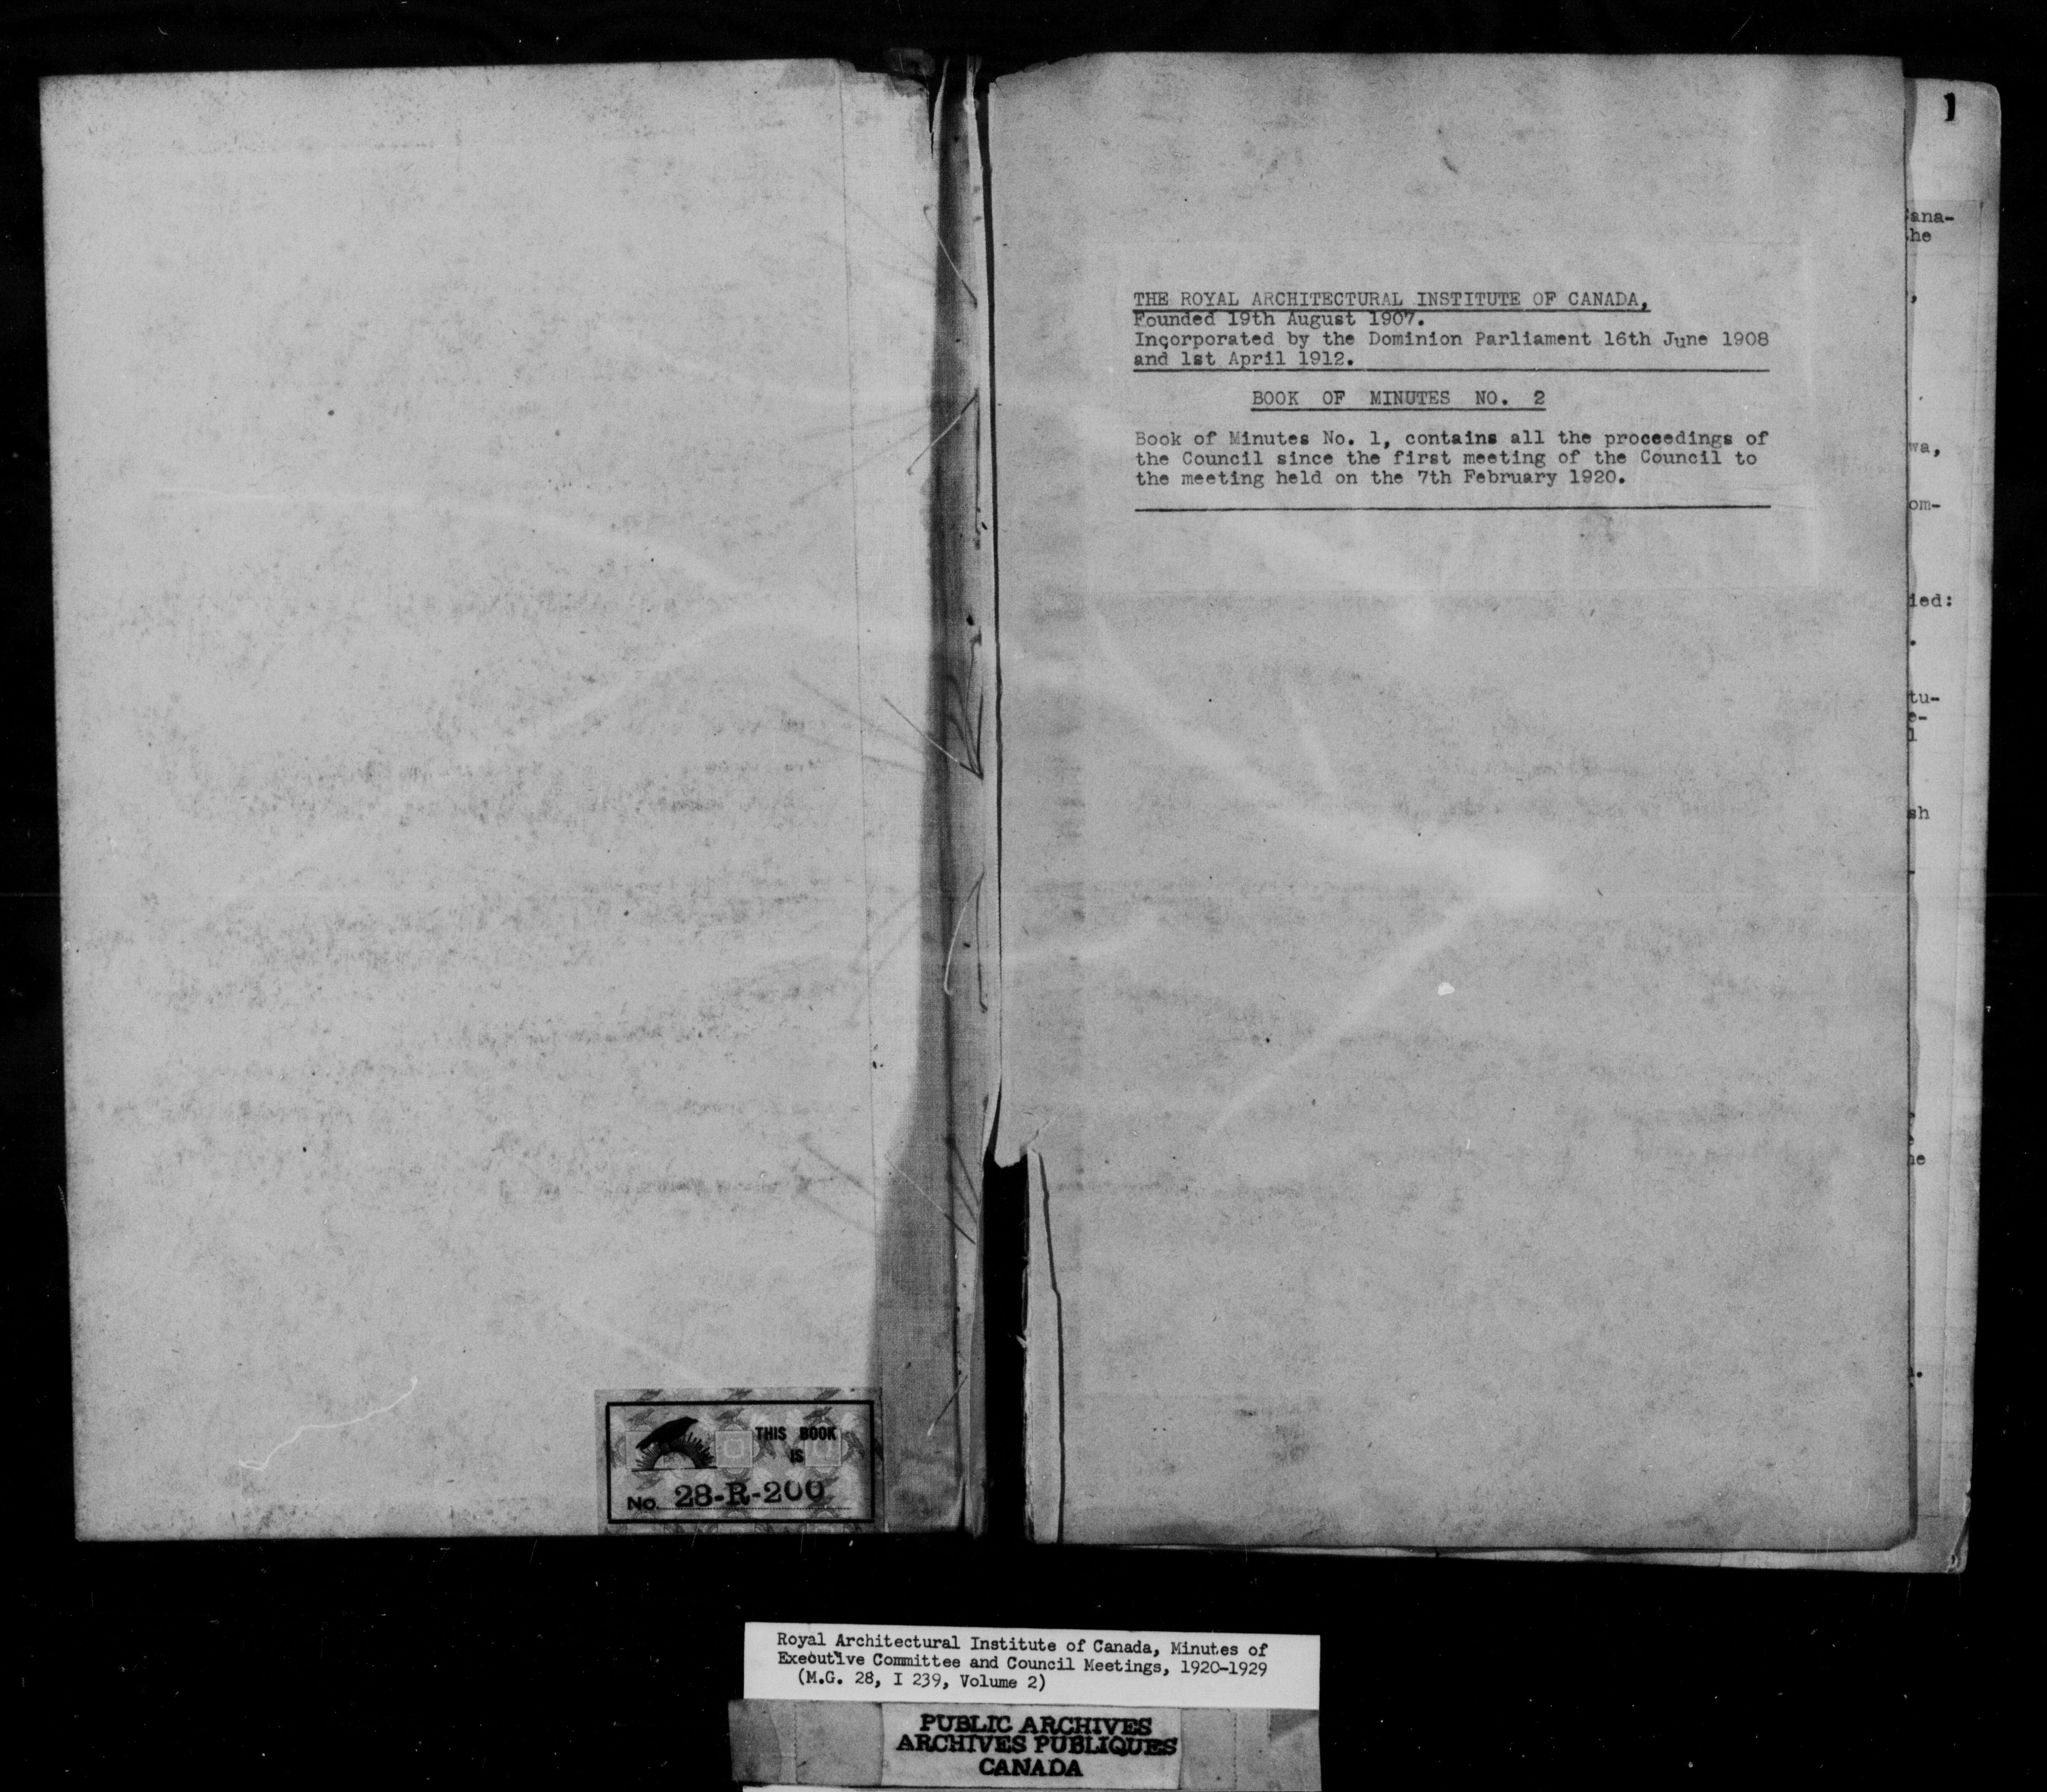 1
THE ROYAL ARCHITECTURAL INSTITUTE OF CANADA,
Founded 19th August 1907.
Incorporated by the Dominion Parliament 16th June 1908
and 1st April 1912.
BOOK OF MINUTES NO. 2
Book of Minutes No. 1, contains all the proceedings of
the Council since the first meeting of the Council to
the meeting held on the 7th February 1920.
ana-
he
,
wa,
om-
ied:
.
tu-
e-
l
sh
-
he
.
THIS BOOK
IS
No. 28-R-200
Royal Architectural Institute of Canada, Minutes of
Executive Committee and Council Meetings, 1920-1929
(M.G. 28, I 239, Volume 2)
PUBLIC ARCHIVES
ARCHIVES PUBLIQUES
CANADA